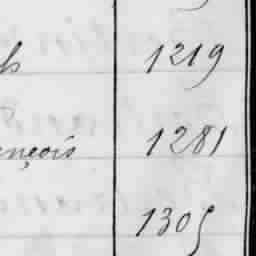 1219
ançois 1281
1305